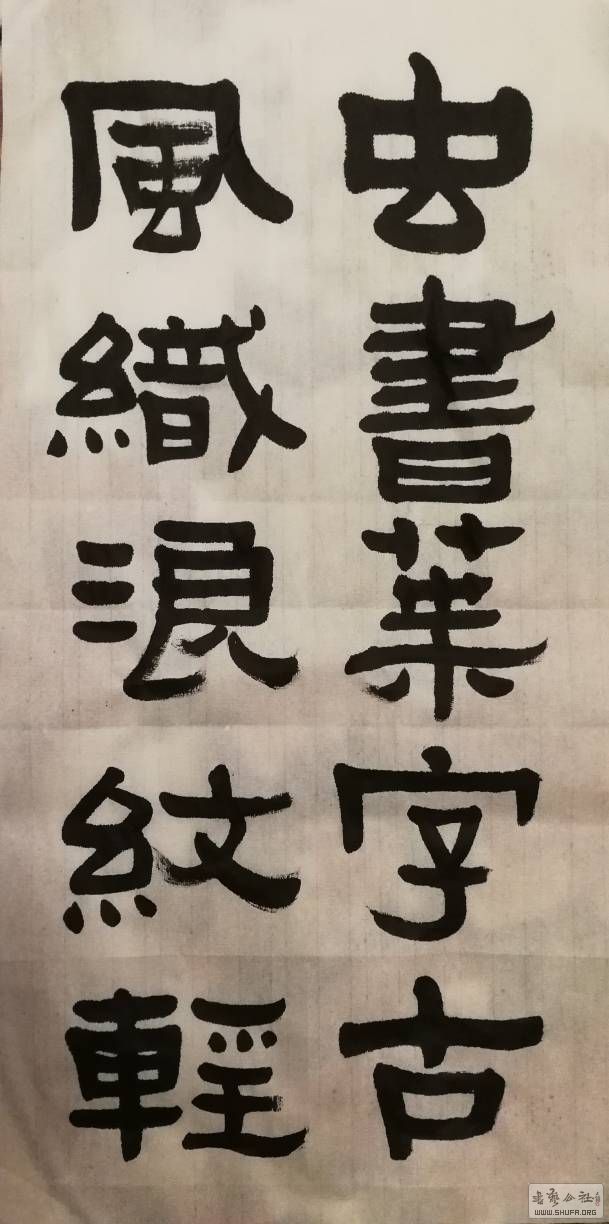 虫書葉字古
風織浪紋輕
WWW.SHUFA.ORG